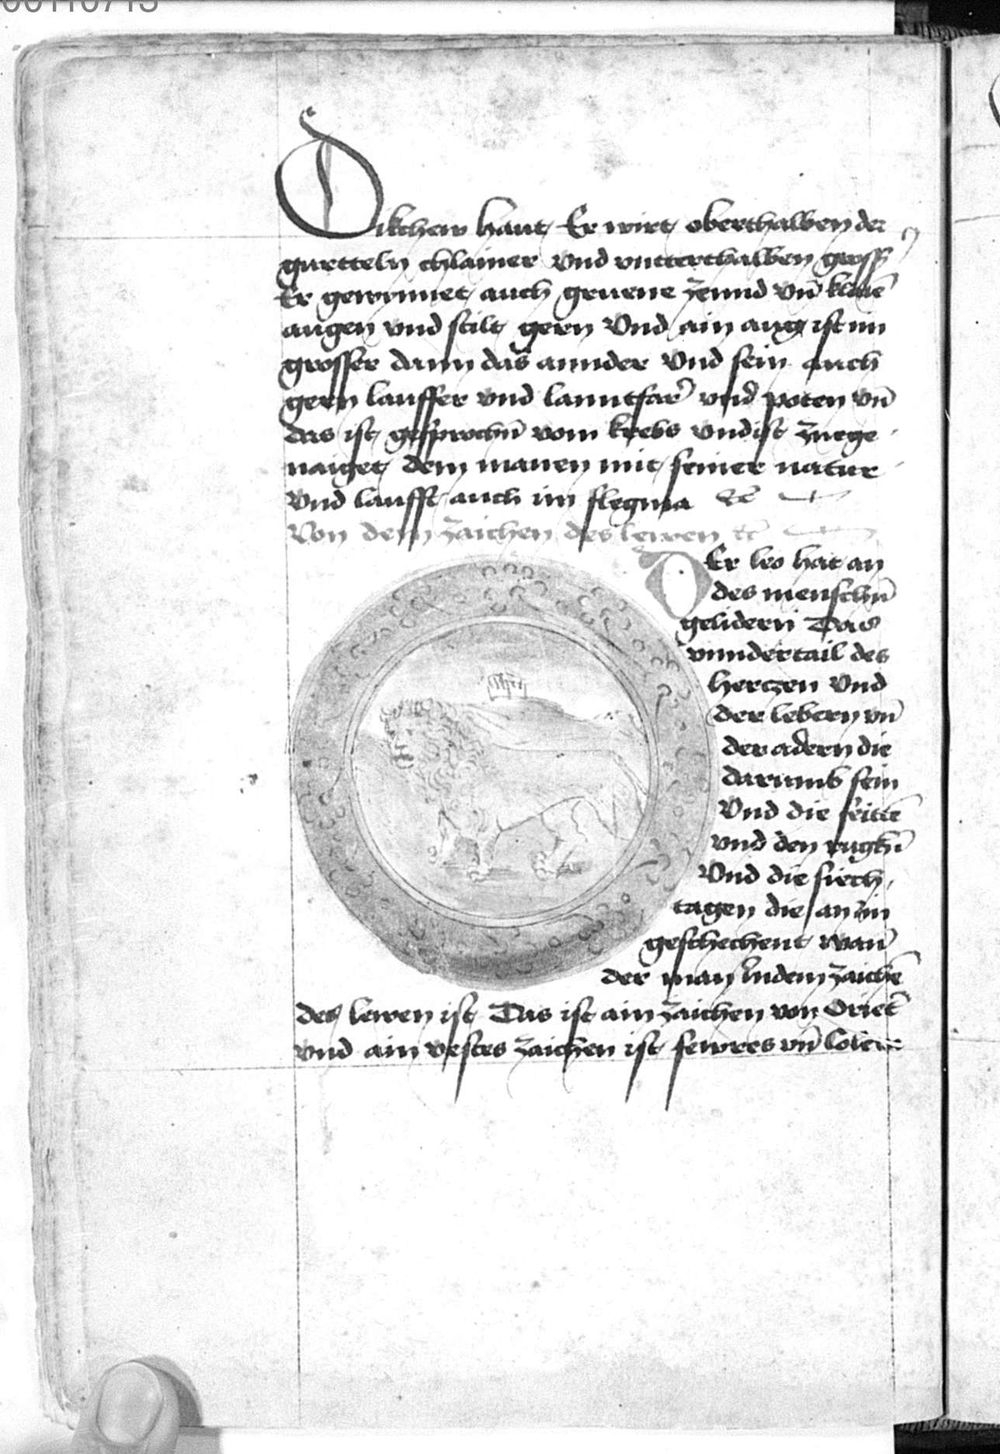 00110713
Dikchew haut Er wirt oberthalben der
gurtteln chlainer Vnd vntterthalben gross
Er gewynnet auch gruene zennd Vn̄ klaiē
augen vnd stilt gern Vnd ain aug ist im
grosser dann das annder Vnd sein auch
gern lauffer vnd lanntfar̄ vnd poten vn̄
das ist gesprochn̄ vom krebs vnd ist zuege
naiget dem manen mit seiner natur
Vnd laufft auch im flegma ꝛc̄
Von dem zaichen des lewen ꝛc̄
DEr leo hat an
des menschn̄
gelidern Das
vnndertail des
hertzen Vnd
der lebern vn̄
der adern die
darumb sein
Vnd die seittē
vnd den rugkn̄
Vnd die siech
tagen die an im
geschechent wan̄
der man In dem zaichē
des lewen ist Das ist ain zaichen von Oriet̄
vnd ain vestes zaichen ist fewres vn̄